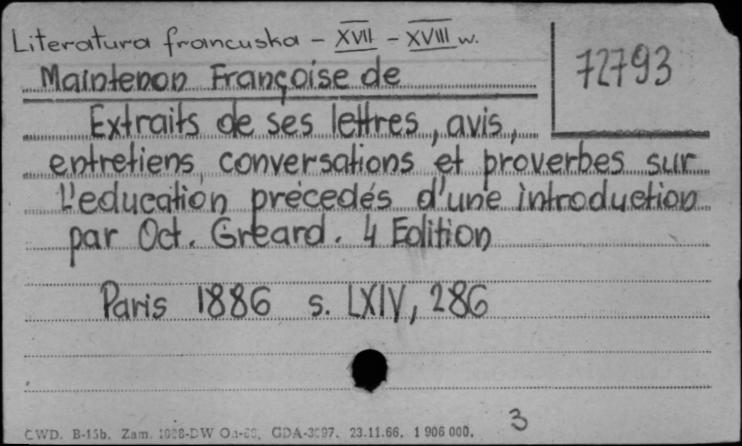 Literatura francuska - XVII - XVIII w.
72793
Maintenon Françoise de
Extraits de ses lettres, avis,
entretiens, conversations et proverbes sur
L'education précedés d'une introduction
par Oct. Greard. 4 Edition
Paris 1886 s. LXIV, 286
3
CWD. B-15b. Zam. GDA-3097. 23.11.66. 1 906 000.